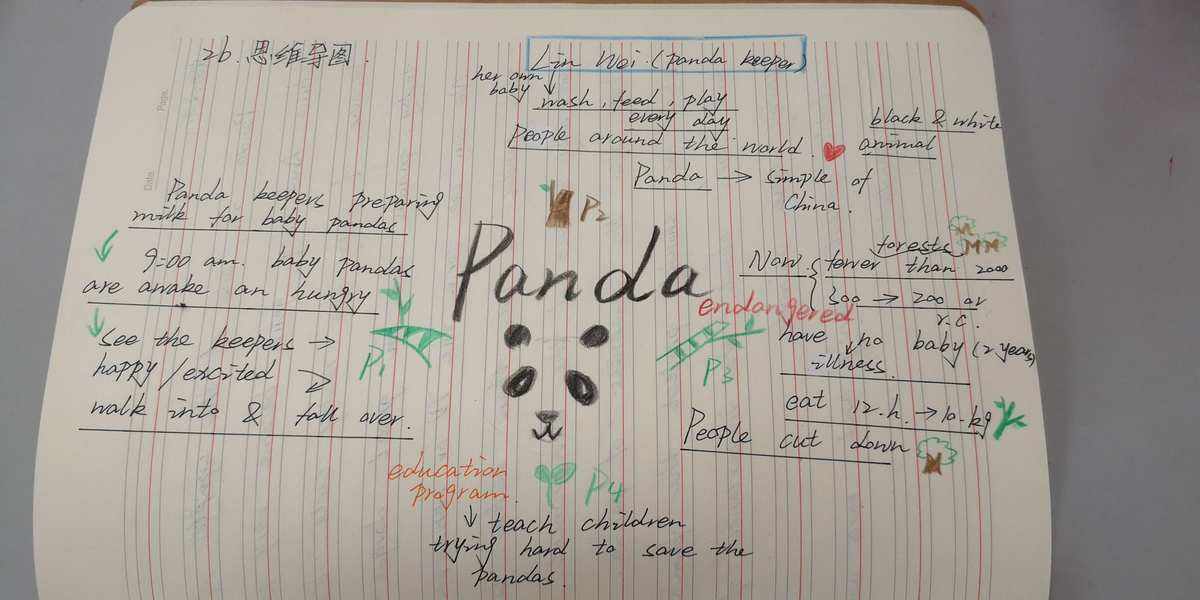 Page.
Date.
2b. 思维导图.
Lin Wei. (panda keeper)
her own
baby
wash, feed, play
every day
People around the world.
black & white
animal
Panda → simple of
China.
P2
Panda
Panda keepers preparing
milk for baby pandas
9:00 am. baby pandas
are awake an hungry
see the keepers →
happy / excited
walk into & fall over.
P1
forests
Now. { fewer than 2000
300 → 200 or
r.c.
endangered
have no baby (2 years)
illness.
P3
eat 12.h. → 10.kg
People cut down
education
program.
P4
↓ teach children
trying hard to save the
pandas.